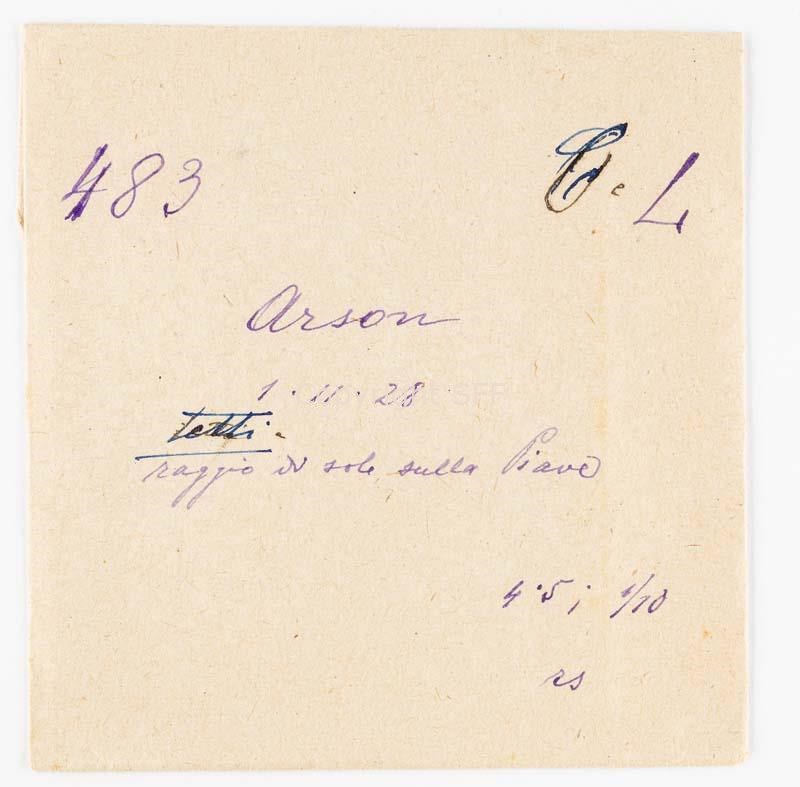 483 L
Arson
1·11·28
tetti.
raggio di sole sulla Piave
4·5; 1/10
rs